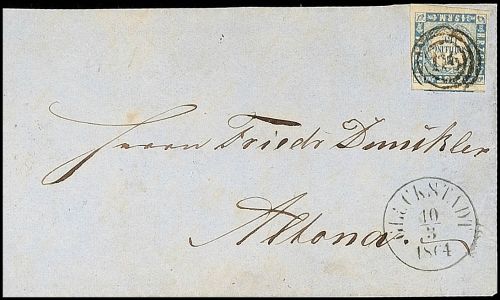 Herrn Friedr Dunikler
Altona.
GLÜCKSTADT
10
3
1864